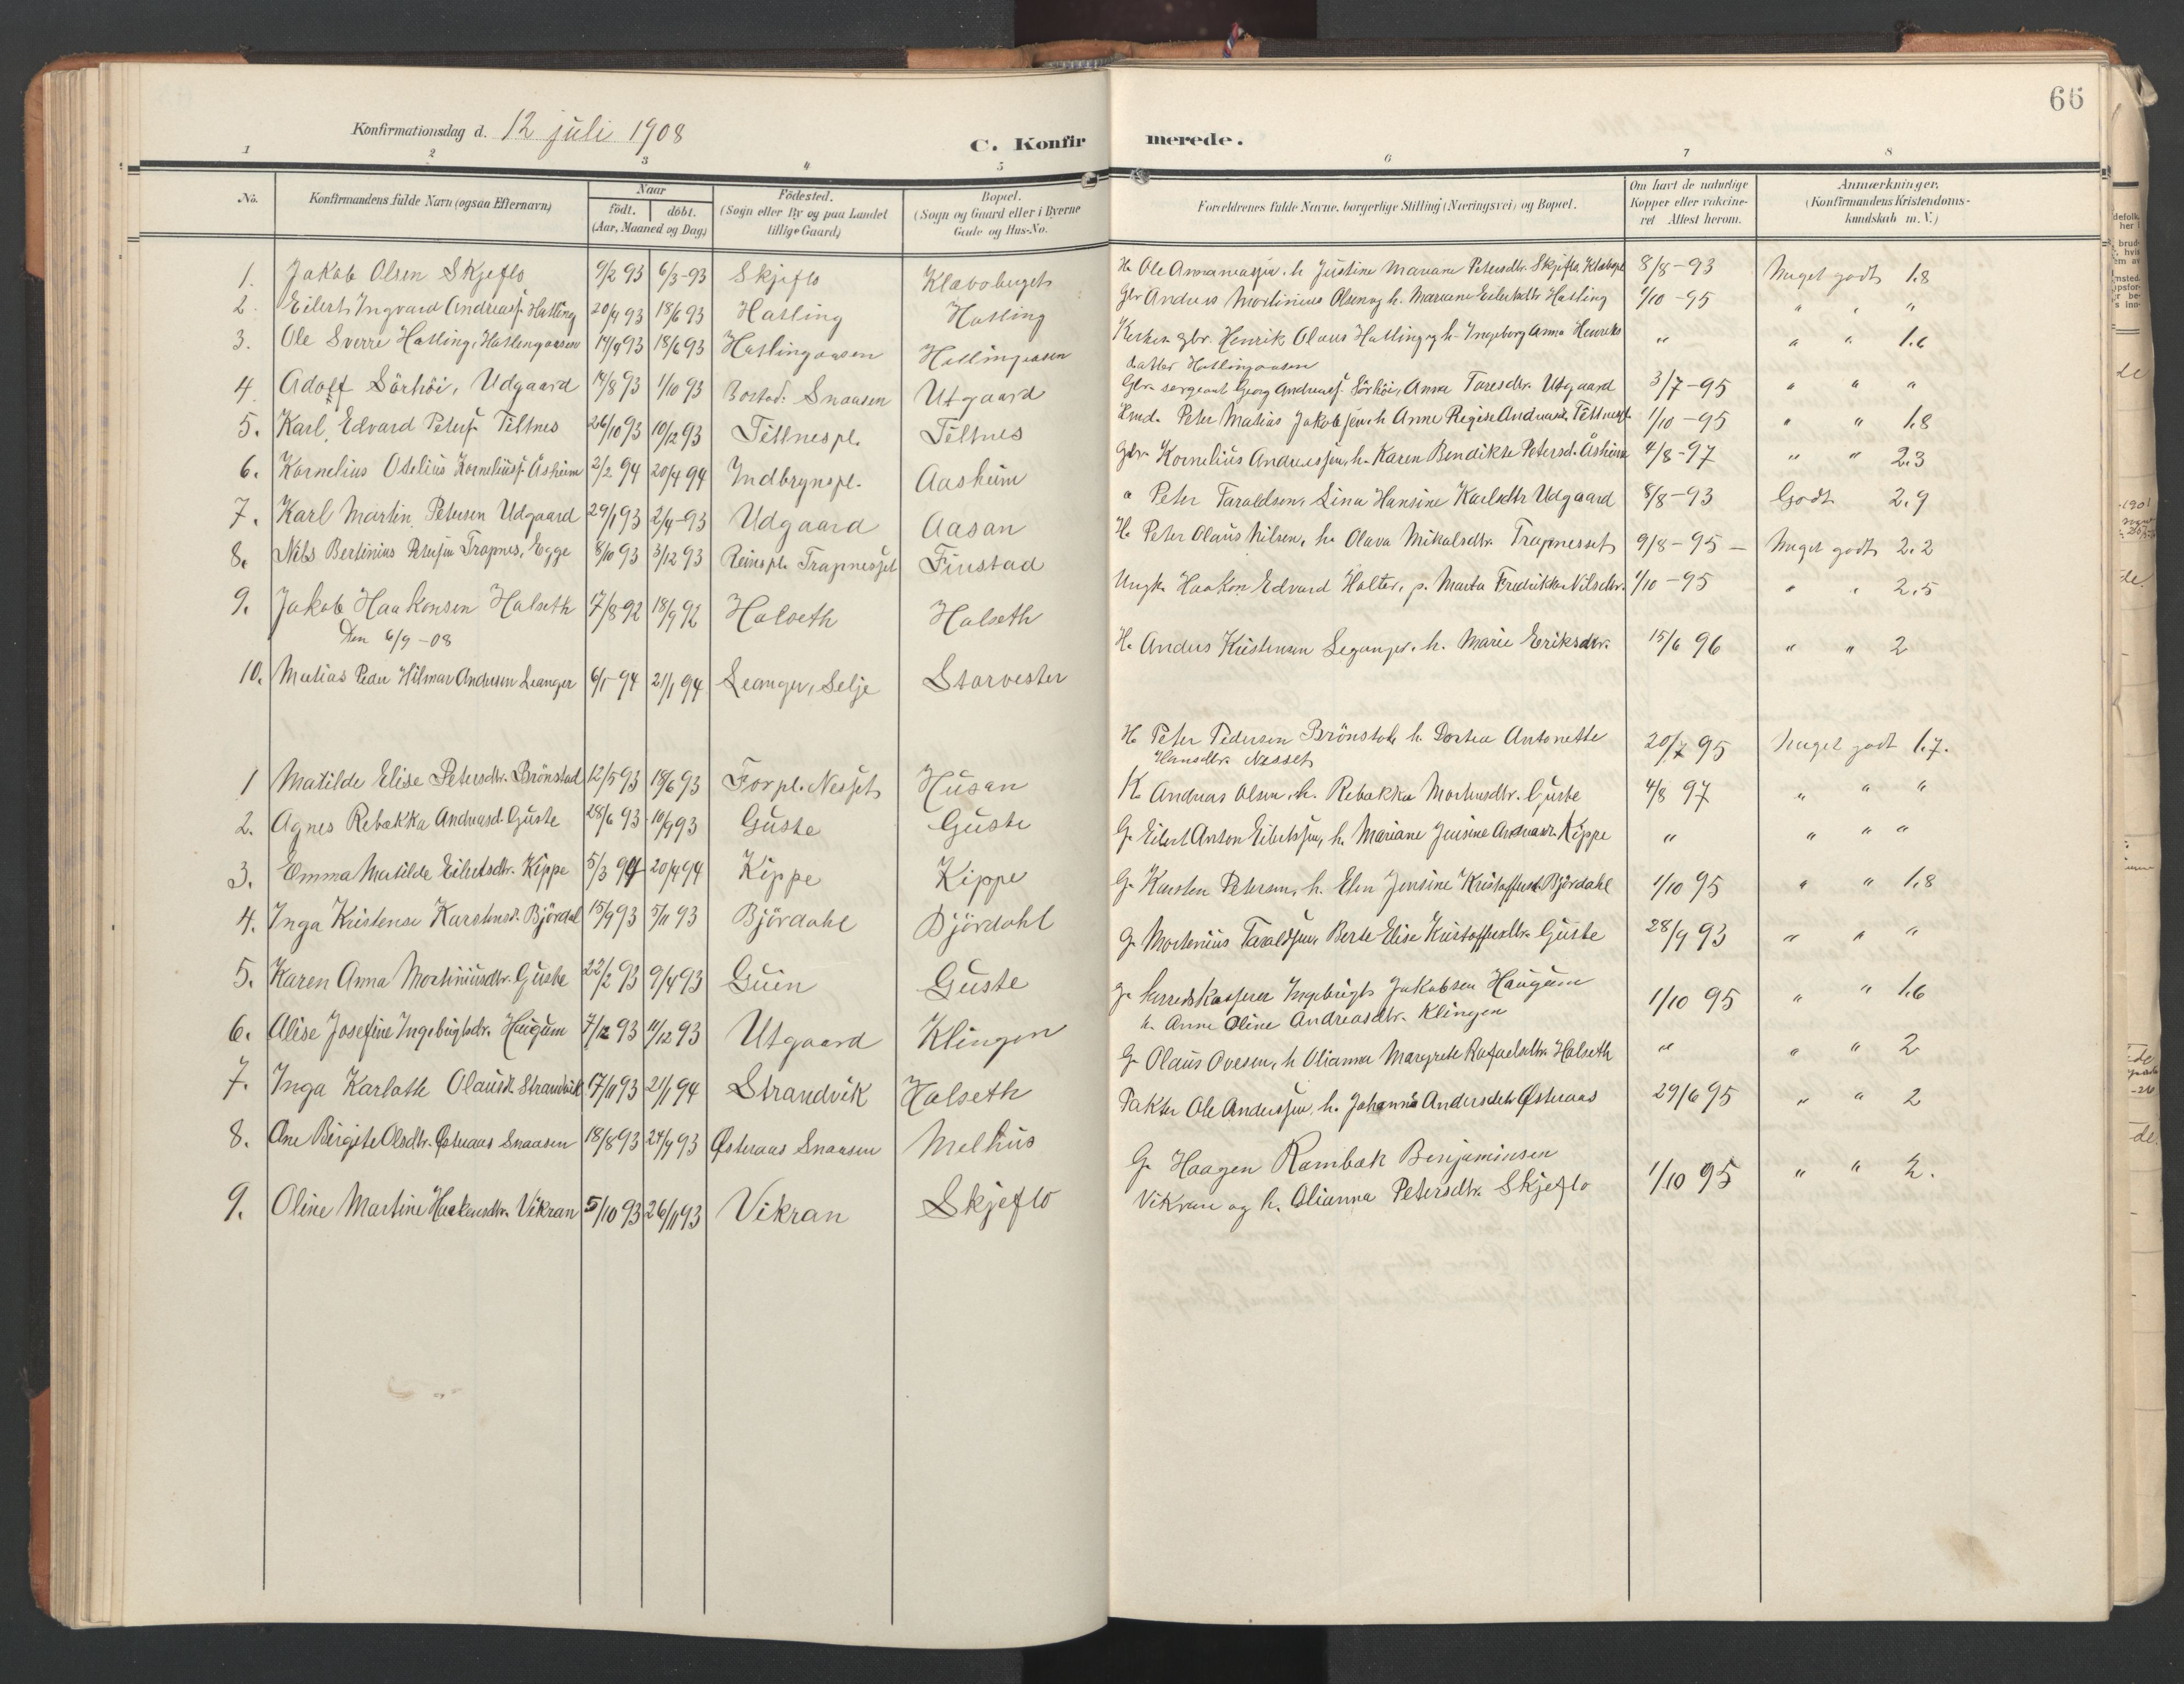 Konfirmationsdag d. 12 juli 1908
C. Konfirmerede.
66
1 2 3 4 5 6 7 8
No. Konfirmandens fulde Navn (ogsaa Efternavn) Naar født. døbt. (Aar, Maaned og Dag) Födested. (Sogn eller By og paa Landet tillige Gaard) Bopæl. (Sogn og Gaard eller i Byerne Gade og Hus-No.) Forældrenes fulde Navne, borgerlige Stilling (Næringsvei) og Bopæl. Om havt de naturlige Kopper eller vakcineret Attest herom. Anmærkninger. (Konfirmandens Kristendomskundskab m. V.)
1. Jakob Olsen Skjeflo 9/2 93 6/3-93 Skjeflo H. Ole h. Justine Mariane Petersdtr. Skjeflo 8/8-93 Meget godt 1.8
2. Eilert Ingvard Andreass. Hatling 20/4 93 18/6 93 Hatling Hatling Gbr Andreas Mortinius Olsen og h. Mariane Eilertsdtr Hatling 1/10-95 " " "
3. Ole Sverre Hatling, Hatlingaasen 14/4 93 18/6 93 Hatlingaasen Hatlingaasen gbr. Henrik Olaus Hatling og h. Ingeborg Anna Henriks
datter Hatlingaasen " " " 1.6
4. Adolf Sörhöi, Udgaard 14/8 93 1/10 93 Snaasen Utgaard Gbr. sergeant Georg Andreass. Sörhöi, Anna Taresdtr. Utgaard 3/7-95 " " "
5. Karl Edvard Peters. Tiltnes 26/10 93 10/12 93 Tiltnespl. Tiltnes Hmd. Peter Matias Jakobsen h. Anne Regise Andreasd. 1/10-95 " " 1.8
6. Kornelius Odelius Korneliuss. Åsheim 2/2 94 20/4 94 Indbrynspl. Aasheim Gbr. Kornelius Andreassen, h. Karen Bendikte Petersd. Åsheim 4/8-97 " " 2.3
7. Karl Martin Petersen Udgaard 29/1 93 2/4-93 Udgaard Aasan " Peter Taraldsen, Lina Hansine Karlsdtr Udgaard 8/8-93 Godt 2.9
8. Nils Bertinius Petersen Trapnes, Egge 8/10 93 3/12 93 Reinspl. Trapnesset Finstad H. Peter Olaus Nilsen, h. Olava Mikalsdtr. Trapnesset 9/8-95 - Meget godt 2.2
9. Jakob Haakonsen Halseth 17/8-92 18/9 92 Halseth Halseth Ungk. Haakon Edvard Holter, p. Marta Fredrikke Nilsdtr. 1/10-95 " " 2.5
Den 6/9-08
10. Matias Peder Hilmar Andersen Leanger 6/1-94 21/1 94 Leanger, Selje Starvester H. Anders Kristensen h. Marie Eriksdtr. 15/6 96 " " 2
1 Matilde Elise Petersdtr. Brönstad 12/5 93 18/6 93 Forpl. Nesset Husan H. Peter Pedersen Brönstad, h. Dortea Antonette
Hansdtr. Nesset 20/7 95 Meget godt 1.7.
2. Agnes Rebekka Andreasd. Guste 28/6 93 10/9 93 Guste Guste K. Andreas Olsen, h. Rebekka Mortensdtr. Guste 4/8 97 " " "
3. Emma Matilde Eilertsdtr. Kippe 5/3 94 20/4 94 Kippe Kippe G. Eilert Anton Eilertssen, h. Mariane Jensine Andreasd. Kippe " " " "
4. Inga Kristense Karstensd. Björdal 15/9 93 5/11 93 Björdahl Björdahl G. Karsten Petersen, h. Elen Jensine Kristoffersd. Björdahl 1/10 95 " " 1.8
5. Karen Anna Mortiniusdtr. Guste 22/2 93 9/4 93 Guin Guste G. Mortenius Taraldsen, Berte Elise Kristoffersdtr. Guste 28/9 93 " " "
6. Alise Josefine Ingebrigtsdtr. Haugum 7/12 93 11/12 93 Utgaard Klingen G. Herredskasserer Ingebrigt Jakobsen Haugum
h. Anne Oline Andreasdtr. Klingen 1/10 95 " " 1.6
7. Inga Karlotte Olausd. Strandvik 17/11 93 21/1 94 Strandvik Halseth G. Olaus Ovesen, h Olianna Margrete Rafaelsdtr. Halseth " " " 2
8. Ane Birgite Olsdtr. Østeraas Snaasen 18/8 93 24/9 93 Østeraas Snaasen Melhus Pakter Ole Anderssen, h. Johanna Andersdtr Østeraas 29/6 95 " " 2
9. Oline Martine Haakensdtr. Vikran 5/10 93 26/11 93 Vikran Skjeflo G. Haagen Rambæk Benjaminsen
Vikran og h. Olianna Petersdtr. Skjeflo 1/10 95 " " 2.